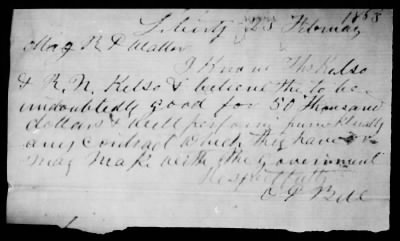 Liberty 23 February 1863
Maj R P Walker
I Know Thos Kelso
& R. N. Kelso & believe the to be
undoubtedly good for 50 thousand
dollars & will perform punctually
any contract which they have or
may make with the government
Respectfully